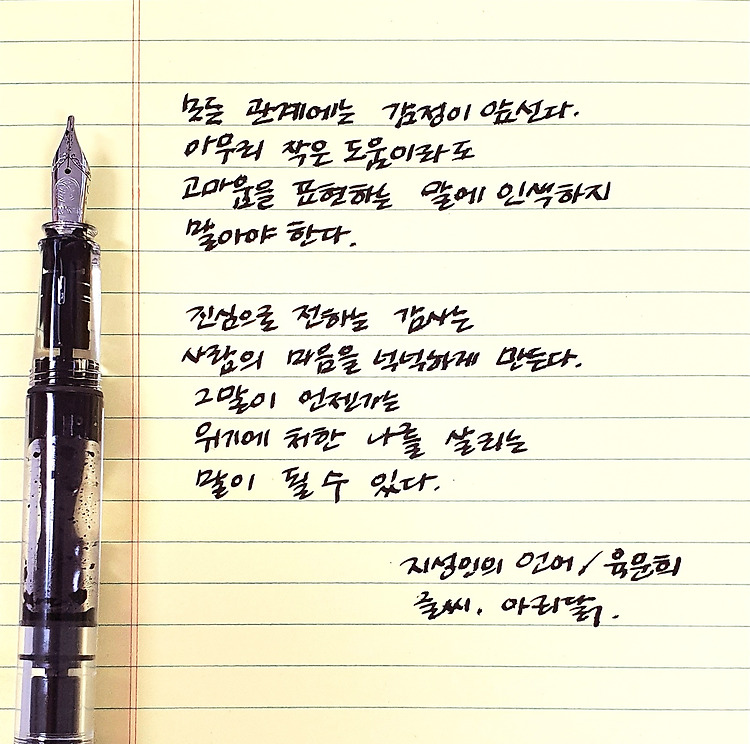 모든 관계에는 감정이 앞선다.
아무리 작은 도움이라도
고마움을 표현하는 말에 인색하지
말아야 한다.
진심으로 전하는 감사는
사람의 마음을 넉넉하게 만든다.
그말이 언젠가는
위기에 처한 나를 살리는
말이 될 수 있다.
지성인의 언어/육문희
글씨. 아리닭.